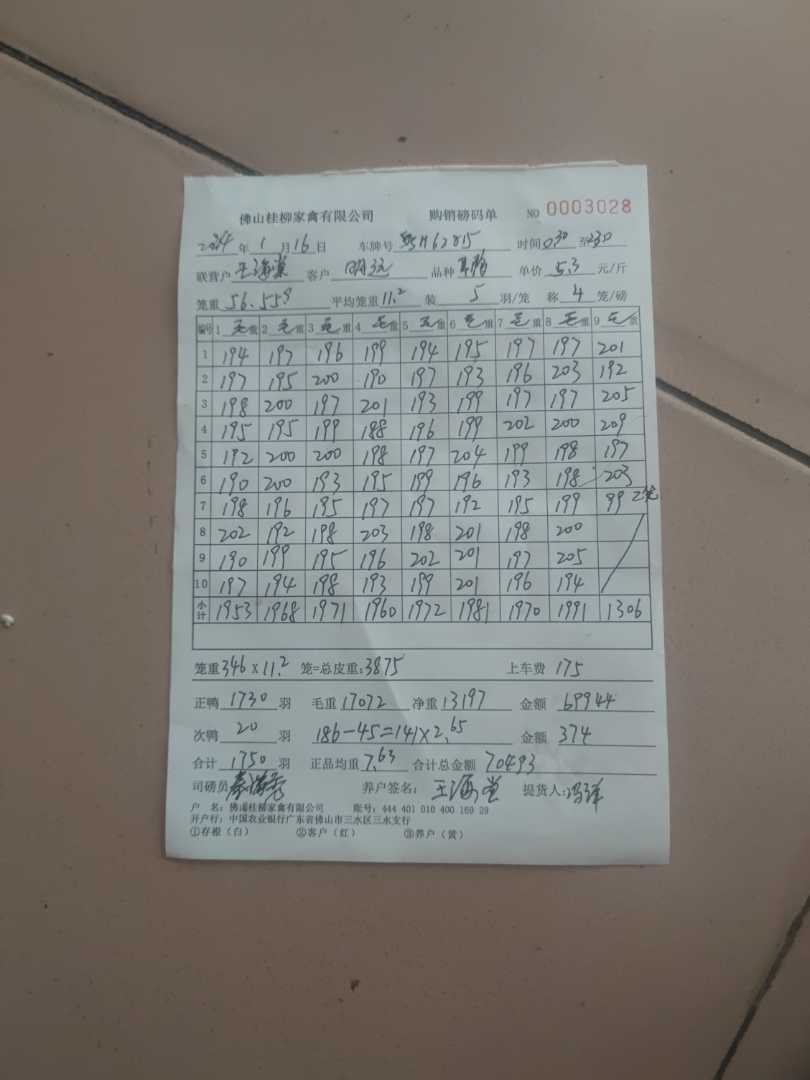 佛山桂柳家禽有限公司 购销磅码单 NO 0003028
2024年 1月16日 车牌号 粤H62815 时间 030 至230
联营户 王海棠 客户 明远 品种 单价 5.3 元/斤
笼重 56.55斤 平均笼重 11.2 装 5 羽/笼 称 4 笼/磅
编号 1 毛重 2 毛重 3 毛重 4 毛重 5 毛重 6 毛重 7 毛重 8 毛重 9 毛重
1 194 197 196 199 194 195 197 197 201
2 197 195 200 190 197 193 196 203 192
3 198 200 197 201 193 199 197 197 205
4 195 195 199 188 196 199 202 200 209
5 192 200 200 198 197 204 199 198 197
6 190 200 193 195 199 196 193 198 203
7 198 196 195 197 197 192 195 199 99 2笼
8 202 192 198 203 198 201 198 200
9 190 199 195 196 202 201 197 205
10 197 194 198 193 199 201 196 194
小计 1953 1968 1971 1960 1972 1981 1970 1991 1306
笼重 346 X 11.2 笼=总皮重:3875 上车费 175
正鸭 1730 羽 毛重 17072 净重 13197 金额 69944
次鸭 20 羽 186-45=141×2.65 金额 374
合计 1750 羽 正品均重 7.63 合计总金额 70493
司磅员 养户签名: 王海棠 提货人:冯洋
户 名: 佛山桂柳家禽有限公司 账号: 444 401 010 400 169 29
开户行: 中国农业银行广东省佛山市三水区三水支行
①存根(白) ②客户(红) ③养户(黄)